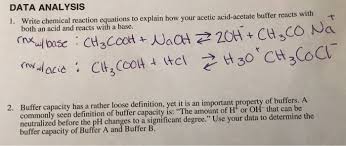 DATA ANALYSIS
1. Write chemical reaction equations to explain how your acetic acid-acetate buffer reacts with
both an acid and reacts with a base.
rnx w/base : CH₃COOH + NaOH ⇄ 2OH⁻ + CH₃CO Na⁺
rnx w/acid : CH₃COOH + HCl ⇄ H₃O⁺ CH₃COCl⁻
2. Buffer capacity has a rather loose definition, yet it is an important property of buffers. A
commonly seen definition of buffer capacity is: "The amount of H⁺ or OH⁻ that can be
neutralized before the pH changes to a significant degree." Use your data to determine the
buffer capacity of Buffer A and Buffer B.